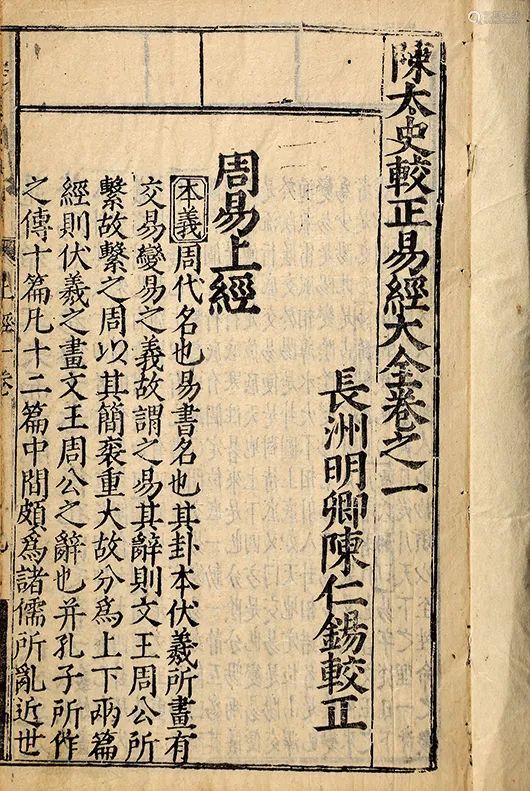 陳太史較正易經大全卷之一
長洲明卿陳仁錫較正
周易上經
本義周代名也易書名也其卦本伏羲所畫有
交易變易之義故謂之易其辭則文王周公所
繫故繫之周以其簡袠重大故分爲上下兩篇
經則伏羲之畫文王周公之辭也并孔子所作
之傳十篇凡十二篇中間頗爲諸儒所亂近世
上經一卷